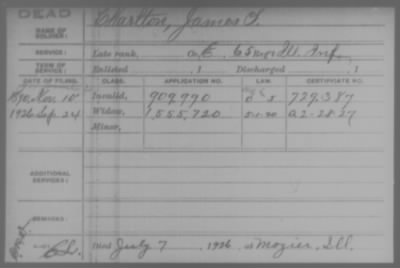 DEAD
NAME OF SOLDIER:
Charlton, James T.
SERVICE:
Late rank, Co. E, 65 Reg't Ill. Inf.
TERM OF SERVICE:
Enlisted , 1 Discharged , 1
DATE OF FILING. CLASS. APPLICATION NO. LAW. CERTIFICATE NO.
1890, Nov. 10 Invalid, 909,990 729,387
1926 Sep. 24 Widow, 1,555,720 5-1-20 A 2-28-27
Minor,
ADDITIONAL SERVICES:
REMARKS:
Died July 7, 1926, at Mozier, Ill.